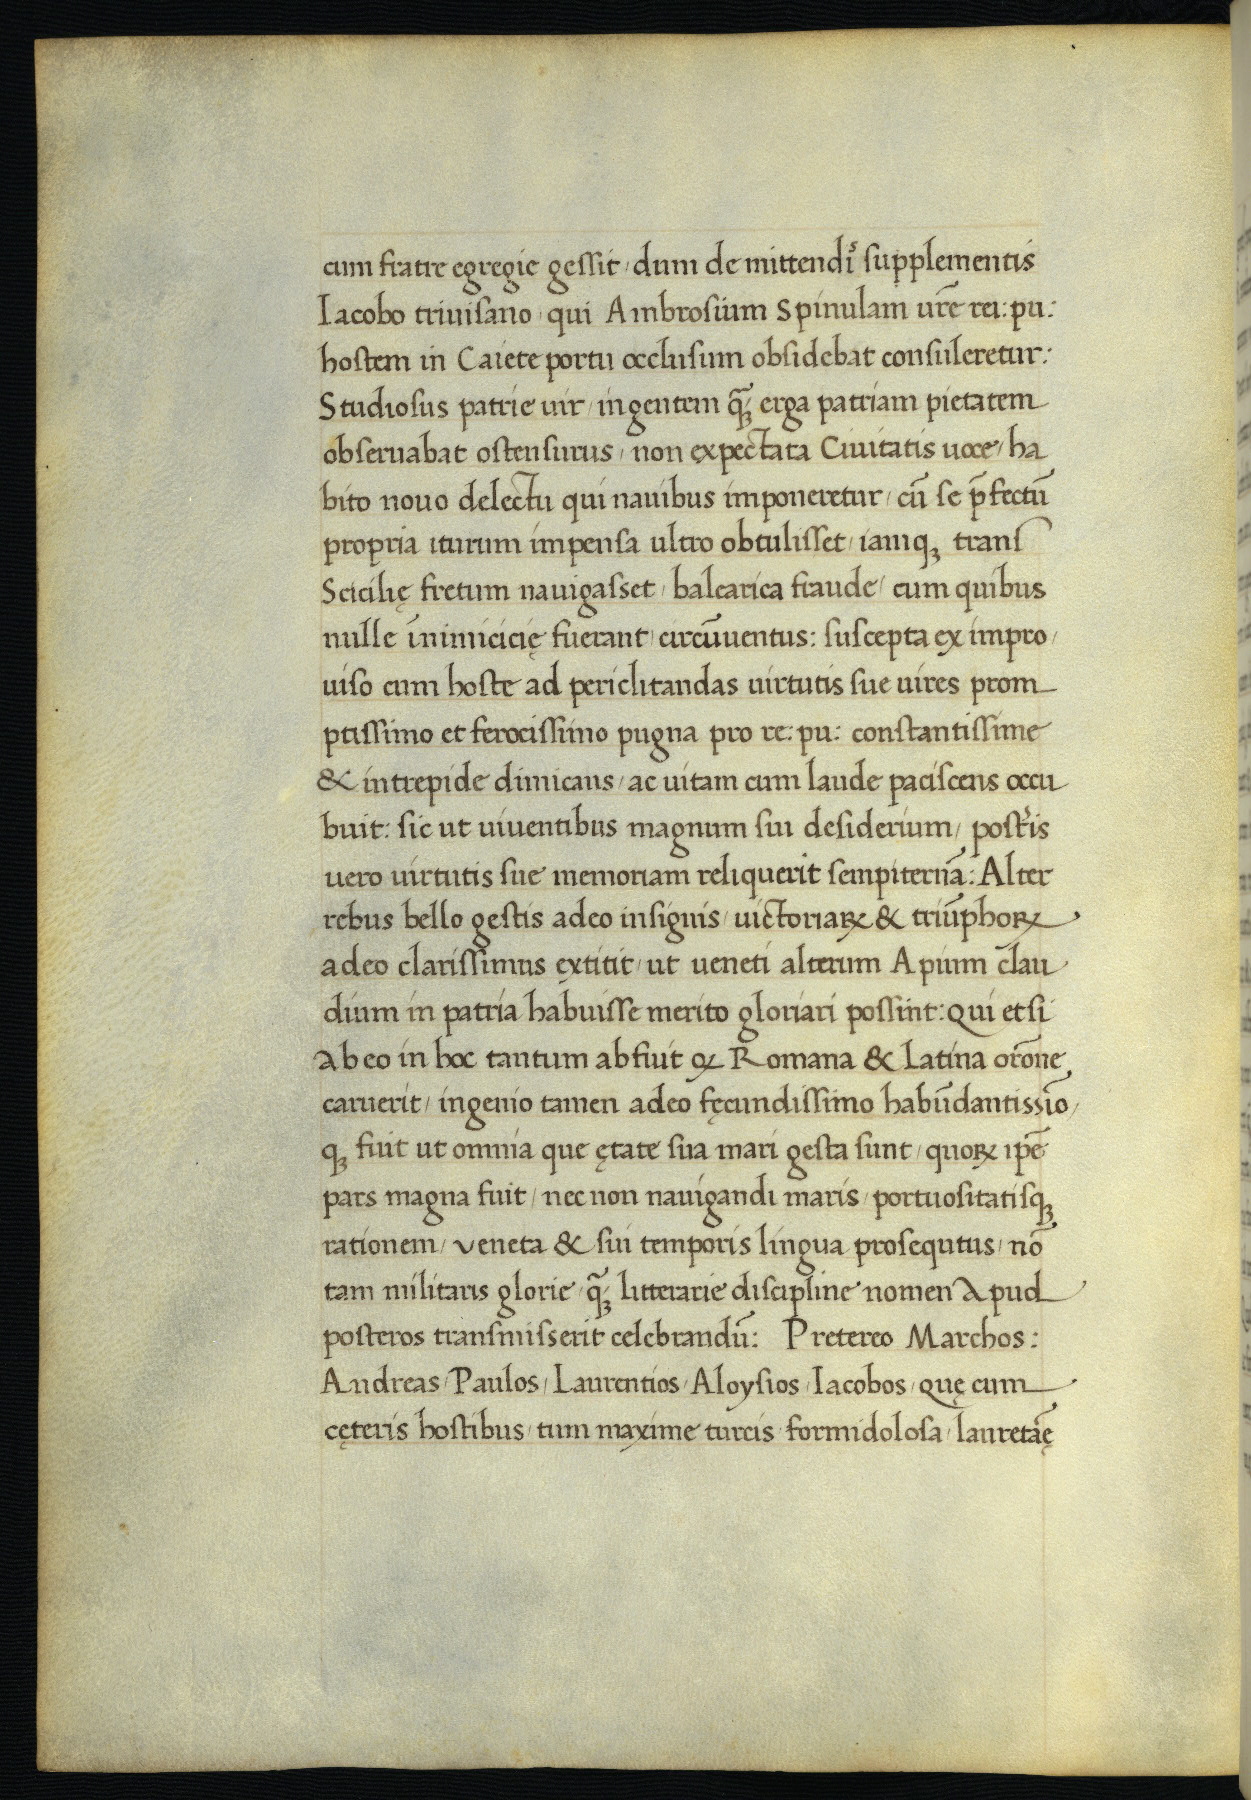 cum fratre egregie gessit / dum de mittendis supplementis
Iacobo triuisano / qui Ambrosium Spinulam ur̄e rei: pu:
hostem in Caiete portu occlusum obsidebat consuleretur:
Studiosus patrie uir / ingentem q̄ꝫ erga patriam pietatem
obseruabat ostensurus / non expectata Ciuitatis uoce / ha
bito nouo delectu qui nauibus imponeretur / cū se p̄fectū
propria iturum impensa ultro obtulisset / iamqꝫ trans
Scicilię fretum nauigasset / balearica fraude / cum quibus
nulle inimicicię fuerant / circūuentus: suscepta ex impro/
uiso cum hoste ad periclitandas uirtutis sue uires prom
ptissimo et ferocissimo pugna pro re: pu: constantissime
& intrepide dimicans / ac uitam cum laude paciscens occu
buit: sic ut uiuentibus magnum sui desiderium / post̄is
uero uirtutis sue memoriam reliquerit sempiternā: Alter
rebus bello gestis adeo insignis / uictoriaꝝ & triūphoꝝ
adeo clarissimus extitit / ut ueneti alterum Apium clau
dium in patria habuisse merito gloriari possint: Qui etsi
Ab eo in hoc tantum abfuit ꝙ Romana & Latina or̄one
caruerit / ingenio tamen adeo fęcundissimo habūdantissīo/
qꝫ fuit ut omnia que ętate sua mari gesta sunt / quoꝝ ip̄e
pars magna fuit / nec non nauigandi maris / portuositatisqꝫ
rationem / veneta & sui temporis lingua prosequtus / nō
tam militaris glorie / q̄ꝫ litterarie discipline nomen Apud
posteros transmisserit celebrandū: Pretereo Marchos:
Andreas / Paulos / Laurentios / Aloysios / Iacobos / quę cum
cęteris hostibus / tum maxime turcis formidolosa / lauretāę